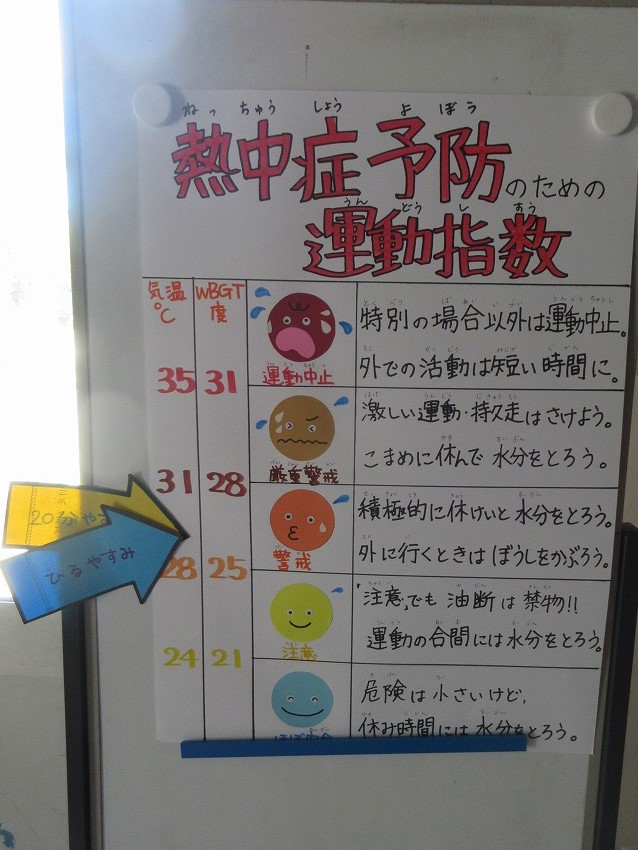 ねっ ちゅう しょう よ ぼう
熱中症予防のための
うん どう し すう
運動指数
気温 WBGT
℃ 度
運動中止
特別の場合以外は運動中止。
外での活動は短い時間に。
35 31
厳重警戒
激しい運動・持久走はさけよう。
こまめに休んで水分をとろう。
31 28
警戒
積極的に休けいと水分をとろう。
外に行くときはぼうしをかぶろう。
20分やす
ひるやすみ
28 25
注意
"注意"でも油断は禁物!!
運動の合間には水分をとろう。
24 21
危険は小さいけど、
休み時間には水分をとろう。